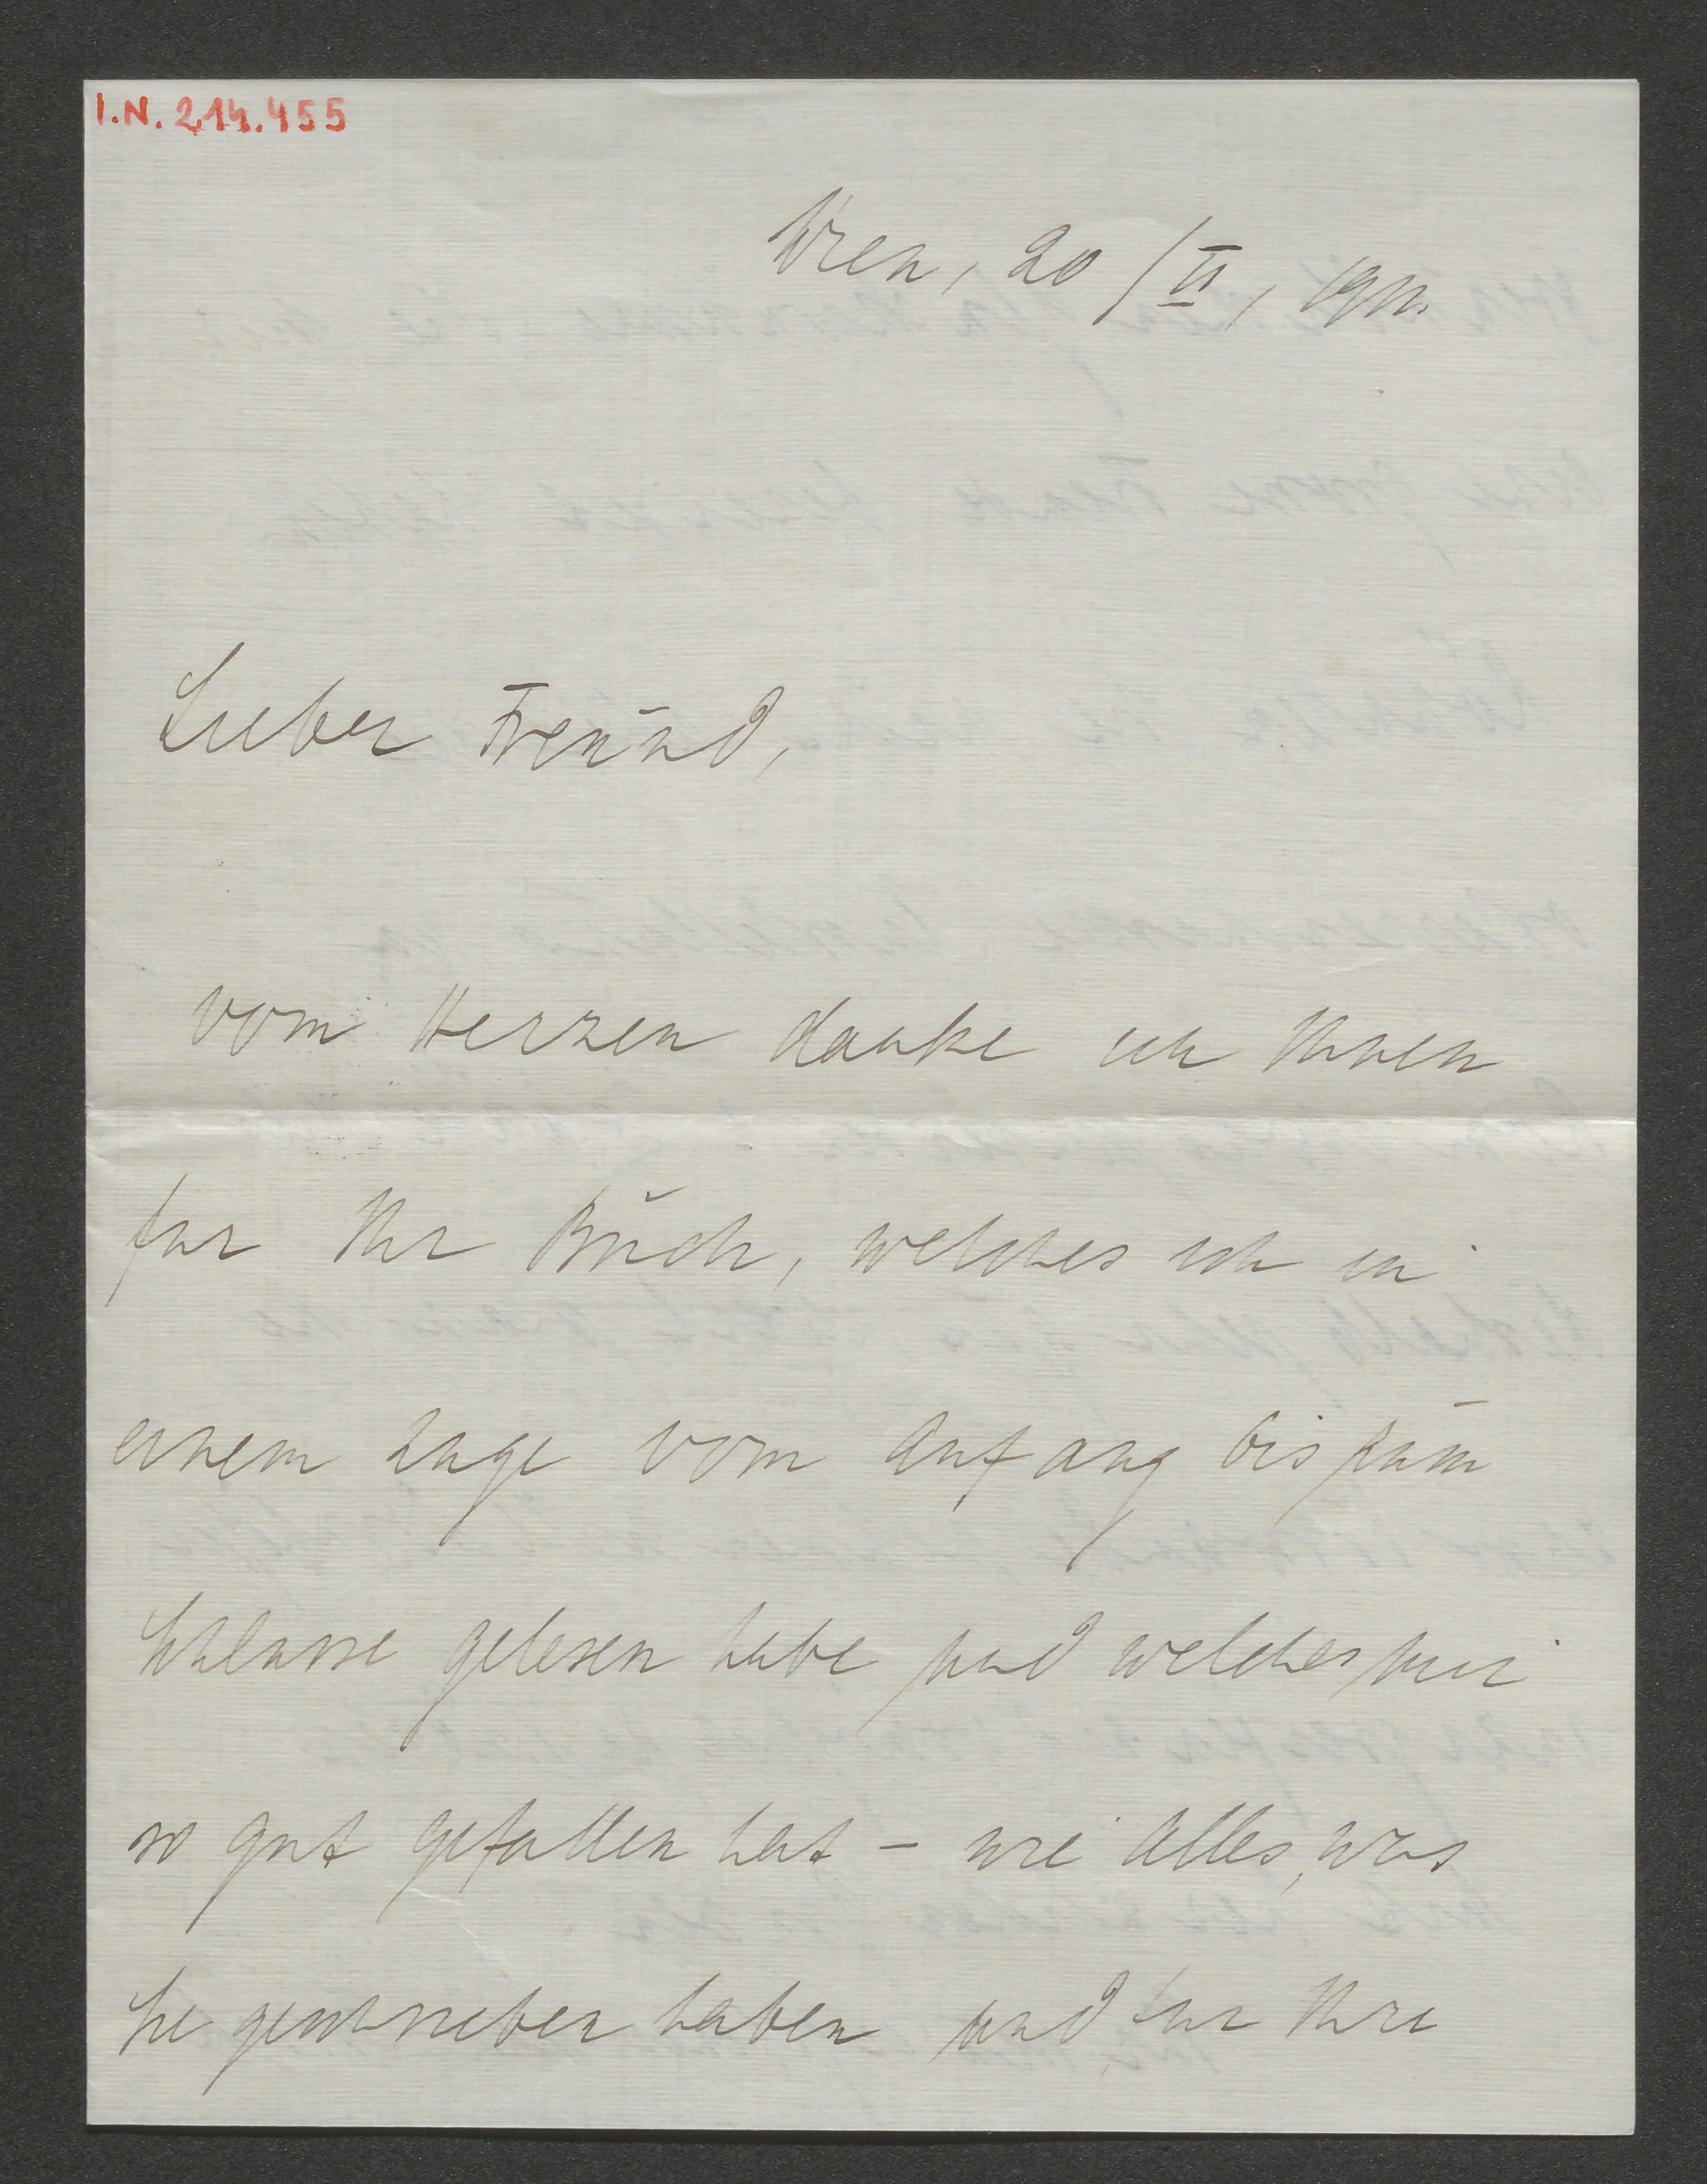 I.N. 214.455
Wien, 20/II, 1911.
Lieber Freund,
vom Herzen danke ich Ihnen
für Ihr Buch, welches ich in
einem Zuge vom Anfang bis zum
Schlusse gelesen habe und welches mir
so gut gefallen hat – wie alles, was
Sie geschrieben haben und für Ihre